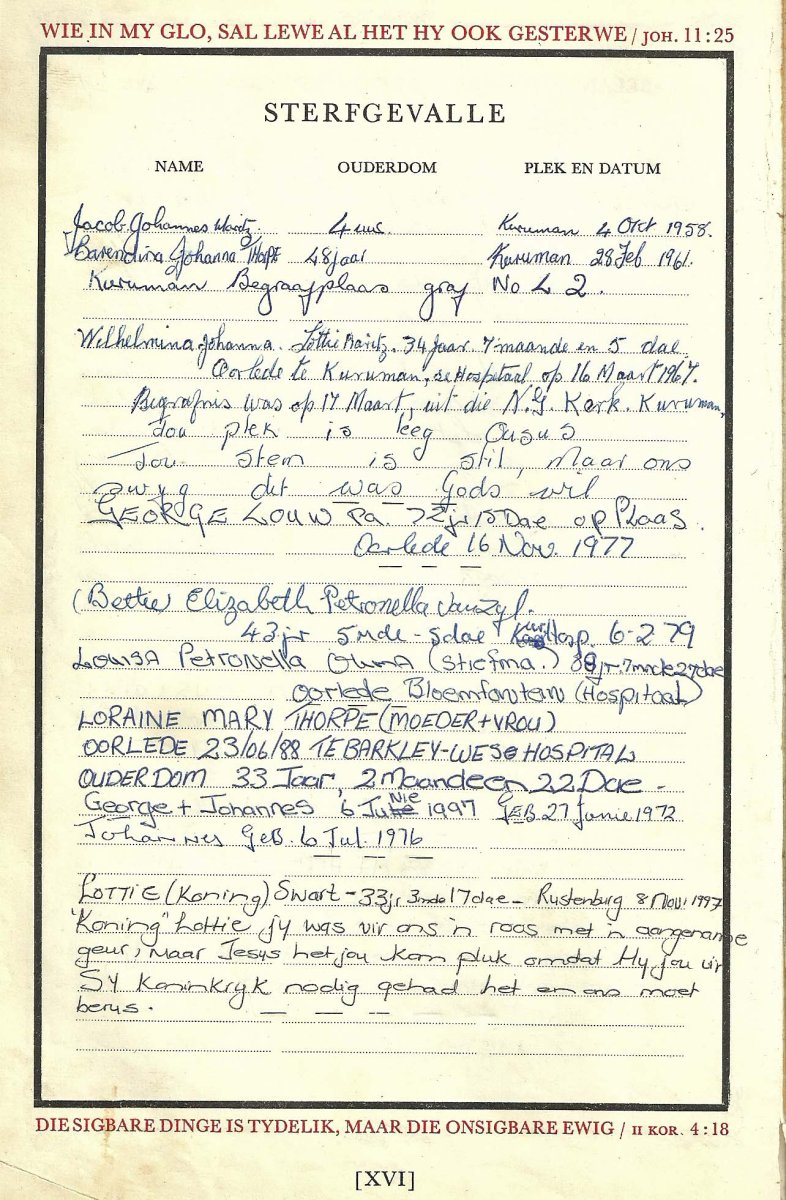 WIE IN MY GLO, SAL LEWE AL HET HY OOK GESTERWE / JOH. 11:25
STERFGEVALLE
NAME OUDERDOM PLEK EN DATUM
Jacob Johannes Maritz. 4 uur. Kuruman 4 Okt 1958.
Barendina Johanna THORPE 48 jaar Kuruman 28 Feb 1961.
Kuruman Begraafplaas graf No L 2.
Wilhelmina Johanna. Lottie Maritz. 34 Jaar 7 maande en 5 dae
Oorlede te Kuruman, se Hospitaal op 16 Maart 1967.
Begrafnis was op 17 Maart, uit die N.G. Kerk. Kuruman,
Jou plek is leeg Ousus
Jou stem is stil, maar ons
swyg dit was Gods wil
GEORGE LOUW Pa 72 jr 15 Dae op Plaas.
Oorlede 16 Nov. 1977
(Bettie) Elizabeth Petronella Van Zyl.
43 jr 5 mde - 5 dae Hosp. 6-2 79
LOUISA PetRoNella (Stiefma.) jr. 7 mnde 27 dae
oorlede Bloemfontein (Hospitaal)
LORAINE MARY THORPE (MOEDER + VROU)
OORLEDE 23/06/88 TE BARKLEY-WES HOSPITAAL
OUDERDOM 33 Jaar, 2 Maande en 22 Dae -
George + Johannes 6 JuNIE 1997 GEB 27 Junie 1972
Johannes GEB. 6 Jul. 1976
LOTTIE (Koning) Swart - 33 jr 3 mde 17 dae - Rustenburg 8 Nov. 1997
"Koning" Lottie jy was vir ons 'n roos met 'n aangename
geur, maar Jesus het jou kom pluk omdat Hy jou vir
Sy Koninkryk nodig gehad het en ons moet
berus.
DIE SIGBARE DINGE IS TYDELIK, MAAR DIE ONSIGBARE EWIG / II KOR. 4:18
[XVI]